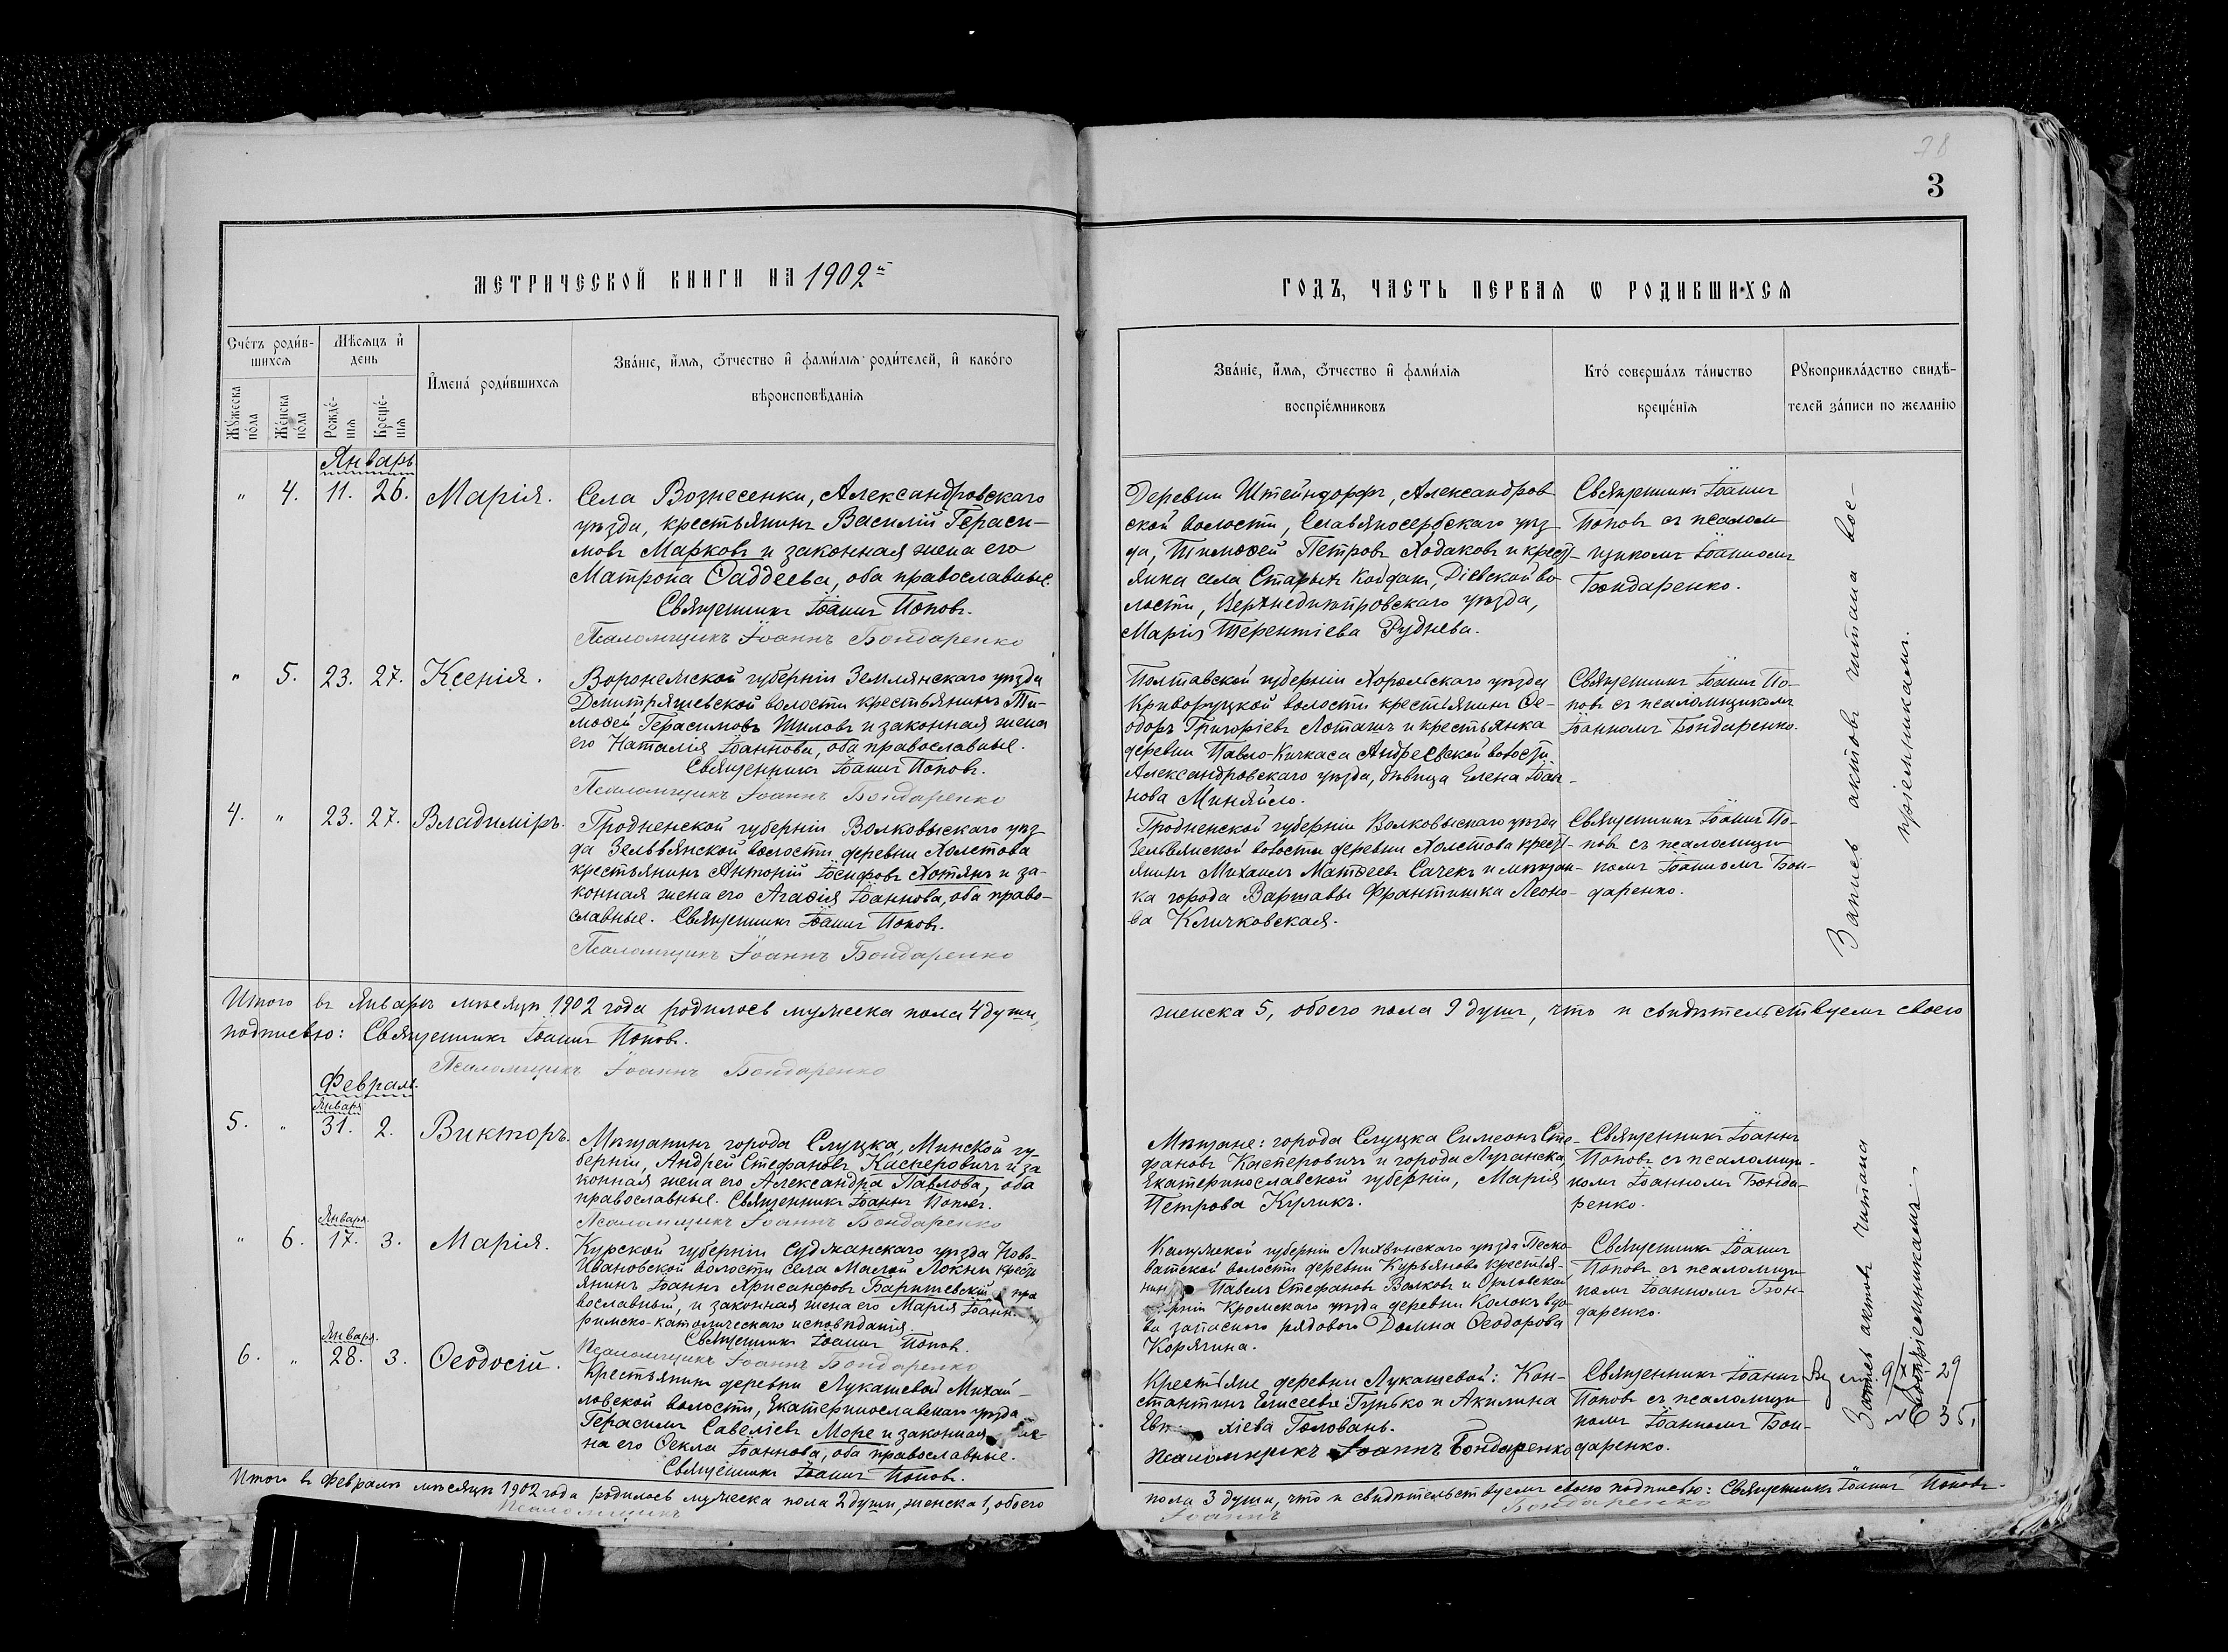 78
3
МЕТРИЧЕСКОЙ КНИГИ НА 1902й
ГОДЪ, ЧАСТЬ ПЕРВАЯ Ѡ РОДИВШИХСЯ
Сче́тъ роди́в-
шихся
Мѣсяцъ и҆
день
И҆мена́ роди́вшихся
Зва́нїе, и҆́мя, ѻ҆́тчество и҆ фами́лїя роди́телей, и҆ како́го
вѣроисповѣ́данїя
Мꙋ́жеска
по́ла
Же́нска
по́ла
Рожде́-
нїя
Креще́-
нїя
Зва́нїе, и҆́мя, ѻ҆́тчество и҆ фами́лїя
воспрїе́мниковъ
Кто́ соверша́лъ та́инство
креще́нїя
Рꙋкоприкла́дство свидѣ́-
телей за́писи по жела́нїю
Январь
" 4. 11. 26. Марія.
Села Вознесенки, Александровскаго
уѣзда, крестьянинъ Василій Гераси-
мовъ Марковъ и законная жена его
Матрона Ѳаддеева, оба православные.
Священникъ Іоаннъ Поповъ.
Псаломщикъ Іоаннъ Бондаренко
Деревни Штейндорфъ, Александров
ской волости, Славяносербскаго уѣз
да, Тимоѳей Петровъ Ходаковъ и крест-
янка села Старыхъ Койдакъ, Діевской во
лости, Верхнеднѣпровскаго уѣзда,
Марія Терентіева Руднева.
Священникъ Іоаннъ
Поповъ съ псалом
щикомъ Іоанномъ
Бондаренко.
" 5. 23. 27. Ксенія.
Воронежской губерніи Землянскаго уѣзда
Дмитряшевской волости крестьянинъ Ти-
моѳей Герасимовъ Шиловъ и законная жена
его Наталія Іоаннова, оба православные.
Священникъ Іоаннъ Поповъ.
Псаломщикъ Іоаннъ Бондаренко
Полтавской губерніи Хорольскаго уѣзда
Криворудской волости крестьянинъ Ѳе-
одоръ Григоріевъ Лоташъ и крестьянка
деревни Павло-Кичкаса Андреевской волости
Александровскаго уѣзда, дѣвица Елена Іоан-
нова Миняйло.
Священникъ Іоаннъ По-
повъ съ псаломщикомъ
Іоанномъ Бондаренко.
4. " 23. 27. Владиміръ.
Гродненской губерніи Волковыскаго уѣз
да Зельвянской волости деревни Холстова
крестьянинъ Антоній Іосифовъ Хотянъ и за-
конная жена его Агаѳія Іоаннова, оба право-
славные. Священникъ Іоаннъ Поповъ.
Псаломщикъ Іоаннъ Бондаренко
Гродненской губерніи Волковыскаго уѣзда
Зельвянской волости деревни Холстова крест-
янинъ Михаилъ Матѳеевъ Сачекъ и мѣщан-
ка города Варшавы Франтишка Леоно-
ва Кличковская.
Священникъ Іоаннъ По-
повъ съ псаломщи
комъ Іоанномъ Бон-
даренко.
Запись актовъ читана вос-
пріемникамъ.
Итого въ Январѣ мѣсяцѣ 1902 года родилось мужеска пола 4 души,
женска 5, обоего пола 9 душъ, что и свидѣтельствуемъ своею
подписью: Священникъ Іоаннъ Поповъ.
Псаломщикъ Іоаннъ Бондаренко
Февраль.
Января
5. " 31. 2. Викторъ.
Мѣщанинъ города Слуцка, Минской гу-
берніи, Андрей Стефановъ Касперовичъ и за
конная жена его Александра Павлова, оба
православные. Священникъ Іоаннъ Поповъ.
Псаломщикъ Іоаннъ Бондаренко
Мѣщане: города Слуцка Симеонъ Сте-
фановъ Касперовичъ и города Луганска,
Екатеринославской губерніи, Марія
Петрова Куликъ.
Священникъ Іоаннъ
Поповъ съ псаломщи-
комъ Іоанномъ Бонда-
ренко.
Января.
" 6. 17. 3. Марія.
Курской губерніи Суджанскаго уѣзда Ново-
Ивановской волости села Малой Локни крест
янинъ Іоаннъ Хрисанфовъ Барышевскій пра
вославный, и законная жена его Марія Іоанн.
римско-католическаго исповѣданія.
Священникъ Іоаннъ Поповъ.
Псаломщикъ Іоаннъ Бондаренко
Калужской губерніи Лихвинскаго уѣзда Песко-
ватской волости деревни Курьяново крестья-
нинъ Павелъ Стефановъ Волковъ и Орловской
рніи Кромскаго уѣзда деревни Колокъ вдо-
ва запаснаго рядового Домна Ѳеодорова
Корягина.
Священникъ Іоаннъ
Поповъ съ псаломщи
комъ Іоанномъ Бон-
даренко.
Января.
6. " 28. 3. Ѳеодосій.
Крестьянинъ деревни Лукашевой Михай-
ловской волости, Екатеринославскаго уѣзда
Герасимъ Савеліевъ Море и законная же-
на его Ѳекла Іоаннова, оба православные.
Священникъ Іоаннъ Поповъ.
Крестьяне деревни Лукашевой: Кон-
стантинъ Елисеевъ Гунько и Акилина
Евт хіева Головань.
Псаломщикъ Іоаннъ Бондаренко
Священникъ Іоаннъ
Поповъ съ псаломщи
комъ Іоанномъ Бон-
даренко.
Запись актовъ читана
воспріемникамъ.
29
635.
Итого въ Февралѣ мѣсяцѣ 1902 года родилось мужеска пола 2 души, женска 1, обоего
пола 3 души, что и свидѣтельствуемъ своею подписью: Священникъ Іоаннъ Поповъ.
Псаломщикъ Іоаннъ Бондаренко